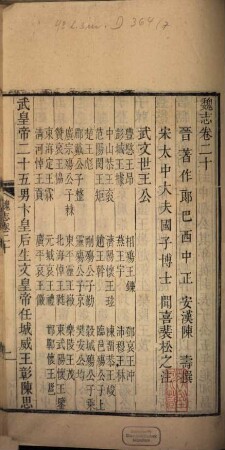 魏志卷二十
晉著作郎巴西中正安漢陳壽撰
宋太中大夫國子博士聞喜裴松之注
武文世王公
豐愍王昂 相殤王鑠 鄧哀王沖
彭城王據 燕王宇 沛穆王林
中山恭王袞 濟陽懷王玹 陳留恭王峻
范陽閔王矩 趙王幹 臨邑殤公子上
楚王彪 剛殤公子勤 穀城殤公子乘
郿戴公子整 靈殤公子京 樊安公均
廣宗殤公子棘 東平靈王徽 樂陵王茂
贊哀王協 北海悼王蕤 東武陽懷王鑒
東海定王霖 元城哀王禮 邯鄲懷王邕
清河悼王貢 廣平哀王儼
武皇帝二十五男卞皇后生文皇帝任城威王彰陳思
魏志卷二十
一